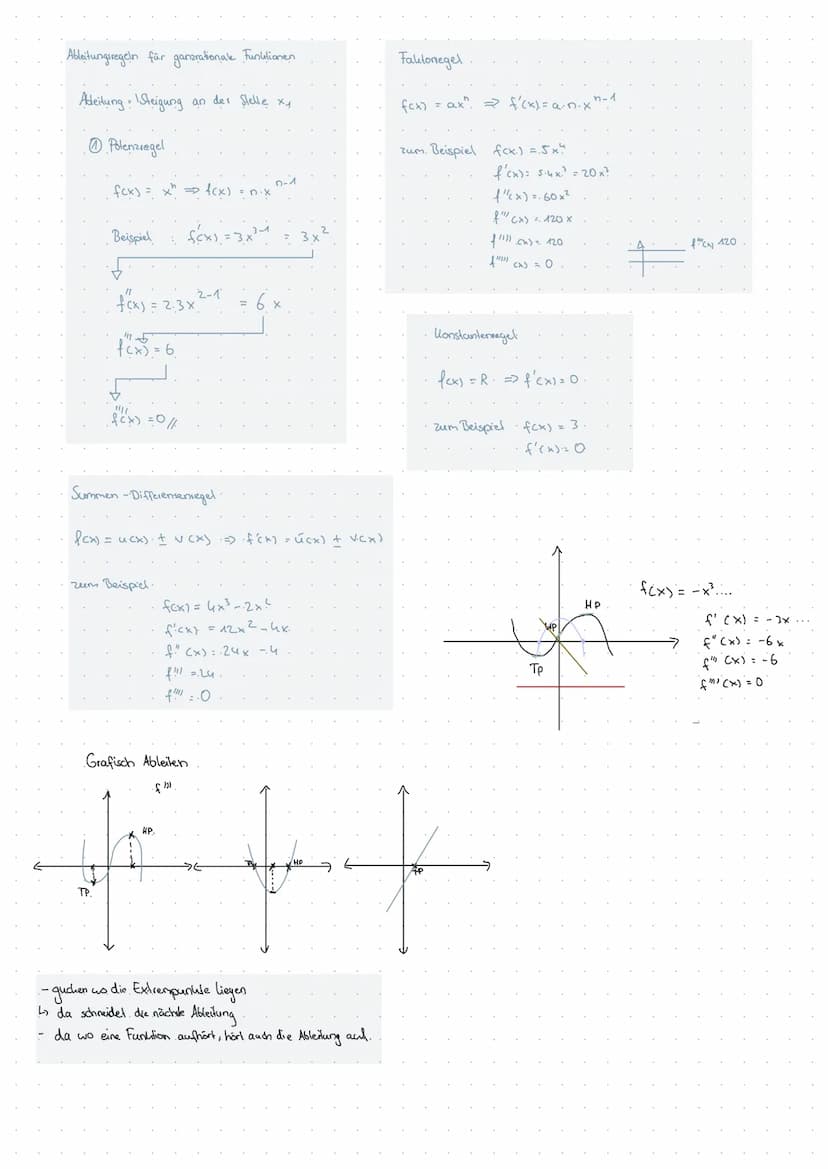 Ableitungsregeln für ganzrationale Funktionen
Ableitung = Steigung an der Stelle x₁
① Potenzregel
f(x) = xⁿ ⇒ f(x) = n·xⁿ⁻¹
Beispiel : f'(x) = 3x³⁻¹ = 3x²
f''(x) = 2·3x²⁻¹ = 6x
f'''(x) = 6
f''''(x) = 0 //
Faktorregel
f(x) = axⁿ ⇒ f'(x) = a·n·xⁿ⁻¹
zum Beispiel f(x) = 5x⁴
f'(x) = 5·4x³ = 20x³
f''(x) = 60x²
f'''(x) = 120x
f''''(x) = 120
f'''''(x) = 0
f''''(x) 120
Konstantenregel
f(x) = R ⇒ f'(x) = 0
zum Beispiel f(x) = 3
f'(x) = 0
Summen-Differenzenregel
f(x) = u(x) ± v(x) ⇒ f'(x) = u'(x) ± v(x)
zum Beispiel
f(x) = 4x³ - 2x²
f'(x) = 12x² - 4x
f''(x) = 24x - 4
f''' = 24
f'''' = 0
f(x) = -x³....
f'(x) = -3x ...
f''(x) = -6x
f'''(x) = -6
f''''(x) = 0
HP
WP
TP
Grafisch Ableiten
f'''
HP.
TP.
HP
- gucken wo die Extrempunkte liegen
↳ da schneidet die nächste Ableitung
- da wo eine Funktion aufhört, hört auch die Ableitung auf.